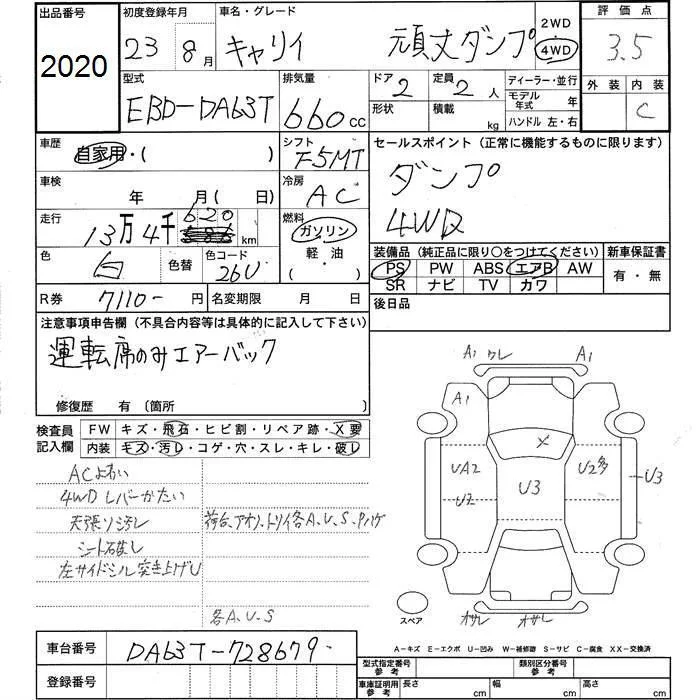 出品番号 2020
初度登録年月 23 8月
車名・グレード キャリイ 頑丈ダンプ
2WD
4WD
評価点 3.5
外装 内装 C
型式 EBD-DA63T
排気量 660cc
ドア 2
定員 2人
形状 積載 kg
ディーラー・並行
モデル年式 年
ハンドル 左・右
車歴 自家用・( )
シフト F5MT
セールスポイント (正常に機能するものに限ります)
ダンプ
4WD
車検 年 月 ( 日)
冷房 AC
走行 13万4千620km
燃料 ガソリン
軽油
( ・ )
色 白
色替
色コード 26U
装備品 (純正品に限り○をつけてください)
PS PW ABS エアB AW
SR ナビ TV カワ
新車保証書
有・無
R券 7110-円
名変期限 月 日
後日品
注意事項申告欄 (不具合内容等は具体的に記入して下さい)
運転席のみエアーバック
修復歴 有 〔箇所 〕
検査員記入欄
FW キズ・飛石・ヒビ割・リペア跡・X要
内装 キズ・汚レ・コゲ・穴・スレ・キレ・破レ
ACよわい
4WDレバーかたい
天張リ汚レ
シート破レ
左サイドシル突き上げU
荷台、アオリ、トリイ各A.U.S.Pハゲ
各A.U.S
A1 ワレ A1
A1
UA2 U2多
U2 U3 U3
X
オサレ オサレ
スペア
A-キズ E-エクボ U-凹み W-補修跡 S-サビ C-腐食 XX-交換済
車台番号 DA63T-728679
登録番号
型式指定番号 参考
類別区分番号 参考
車庫証明用 参考 長さ cm 幅 cm 高さ cm